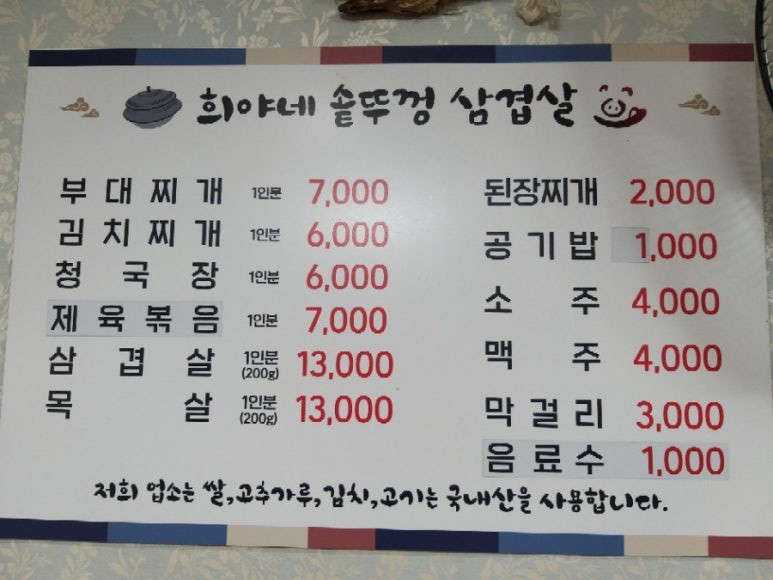 희야네 솥뚜껑 삼겹살
부대찌개 1인분 7,000
김치찌개 1인분 6,000
청국장 1인분 6,000
제육볶음 1인분 7,000
삼겹살 1인분 (200g) 13,000
목살 1인분 (200g) 13,000
된장찌개 2,000
공기밥 1,000
소주 4,000
맥주 4,000
막걸리 3,000
음료수 1,000
저희 업소는 쌀,고추가루,김치,고기는 국내산을 사용합니다.